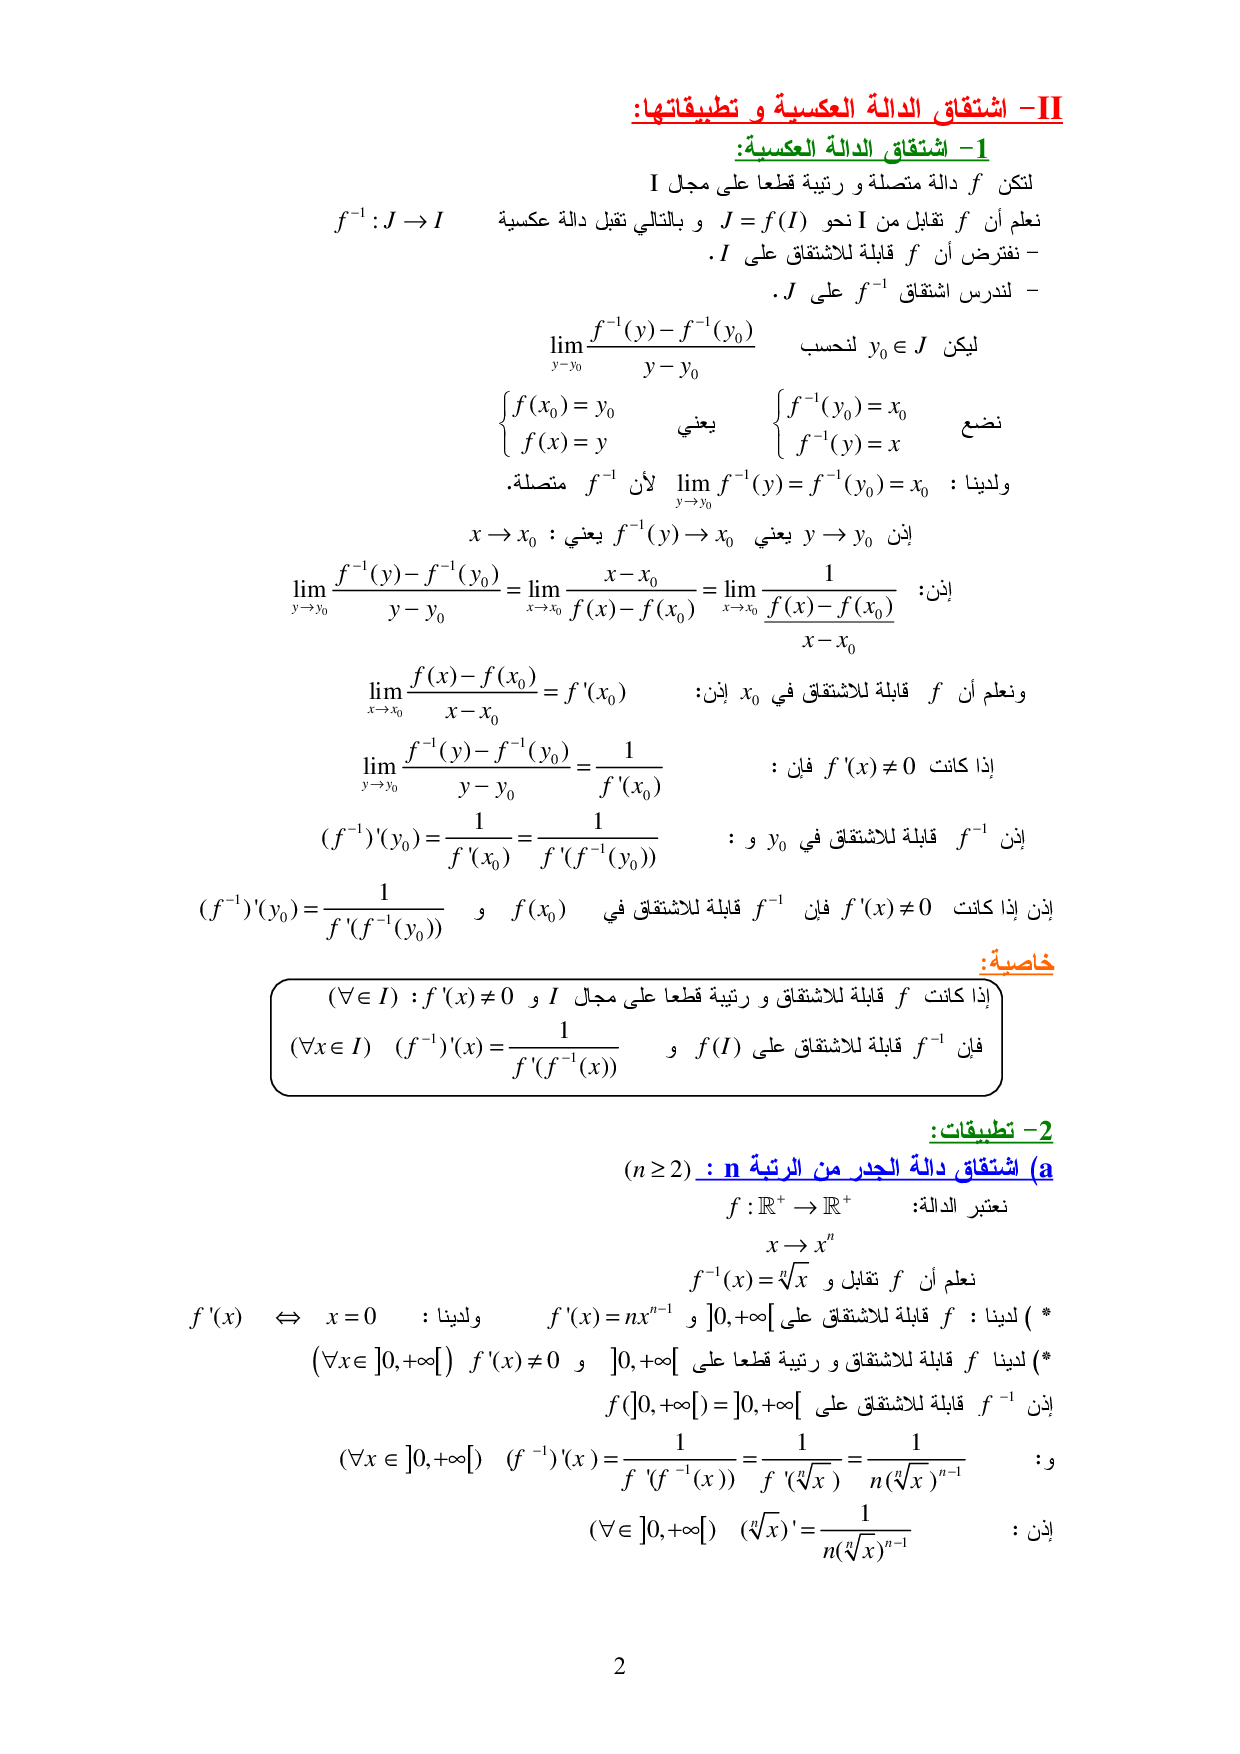 II- اشتقاق الدالة العكسية و تطبيقاتها:
1- اشتقاق الدالة العكسية:
لتكن f دالة متصلة و رتيبة قطعا على مجال I
نعلم أن f تقابل من I نحو J = f(I) و بالتالي تقبل دالة عكسية f⁻¹ : J → I
- نفترض أن f قابلة للاشتقاق على I .
- لندرس اشتقاق f⁻¹ على J .
ليكن y₀ ∈ J لنحسب lim_{y−y₀} (f⁻¹(y) − f⁻¹(y₀)) / (y − y₀)
نضع { f⁻¹(y₀) = x₀ ; f⁻¹(y) = x يعني { f(x₀) = y₀ ; f(x) = y
ولدينا : lim_{y→y₀} f⁻¹(y) = f⁻¹(y₀) = x₀ لأن f⁻¹ متصلة.
إذن y → y₀ يعني f⁻¹(y) → x₀ يعني : x → x₀
إذن: lim_{y→y₀} (f⁻¹(y) − f⁻¹(y₀)) / (y − y₀) = lim_{x→x₀} (x − x₀) / (f(x) − f(x₀)) = lim_{x→x₀} 1 / ((f(x) − f(x₀)) / (x − x₀))
ونعلم أن f قابلة للاشتقاق في x₀ إذن: lim_{x→x₀} (f(x) − f(x₀)) / (x − x₀) = f '(x₀)
إذا كانت f '(x) ≠ 0 فإن : lim_{y→y₀} (f⁻¹(y) − f⁻¹(y₀)) / (y − y₀) = 1 / f '(x₀)
إذن f⁻¹ قابلة للاشتقاق في y₀ و : (f⁻¹)'(y₀) = 1 / f '(x₀) = 1 / f '(f⁻¹(y₀))
إذن إذا كانت f '(x) ≠ 0 فإن f⁻¹ قابلة للاشتقاق في f(x₀) و (f⁻¹)'(y₀) = 1 / f '(f⁻¹(y₀))
خاصية:
إذا كانت f قابلة للاشتقاق و رتيبة قطعا على مجال I و (∀ ∈ I) : f '(x) ≠ 0
فإن f⁻¹ قابلة للاشتقاق على f(I) و (∀x ∈ I) (f⁻¹)'(x) = 1 / f '(f⁻¹(x))
2- تطبيقات:
a) اشتقاق دالة الجدر من الرتبة n : (n ≥ 2)
نعتبر الدالة: f : ℝ⁺ → ℝ⁺
x → xⁿ
نعلم أن f تقابل و f⁻¹(x) = ⁿ√x
* ) لدينا : f قابلة للاشتقاق على ]0,+∞[ و f '(x) = nxⁿ⁻¹ ولدينا : f '(x) ⇔ x = 0
*) لدينا f قابلة للاشتقاق و رتيبة قطعا على ]0,+∞[ و (∀x ∈ ]0,+∞[) f '(x) ≠ 0
إذن f⁻¹ قابلة للاشتقاق على f(]0,+∞[) = ]0,+∞[
و: (∀x ∈ ]0,+∞[) (f⁻¹)'(x) = 1 / f '(f⁻¹(x)) = 1 / f '(ⁿ√x) = 1 / n(ⁿ√x)ⁿ⁻¹
إذن : (∀ ∈ ]0,+∞[) (ⁿ√x)' = 1 / n(ⁿ√x)ⁿ⁻¹
2